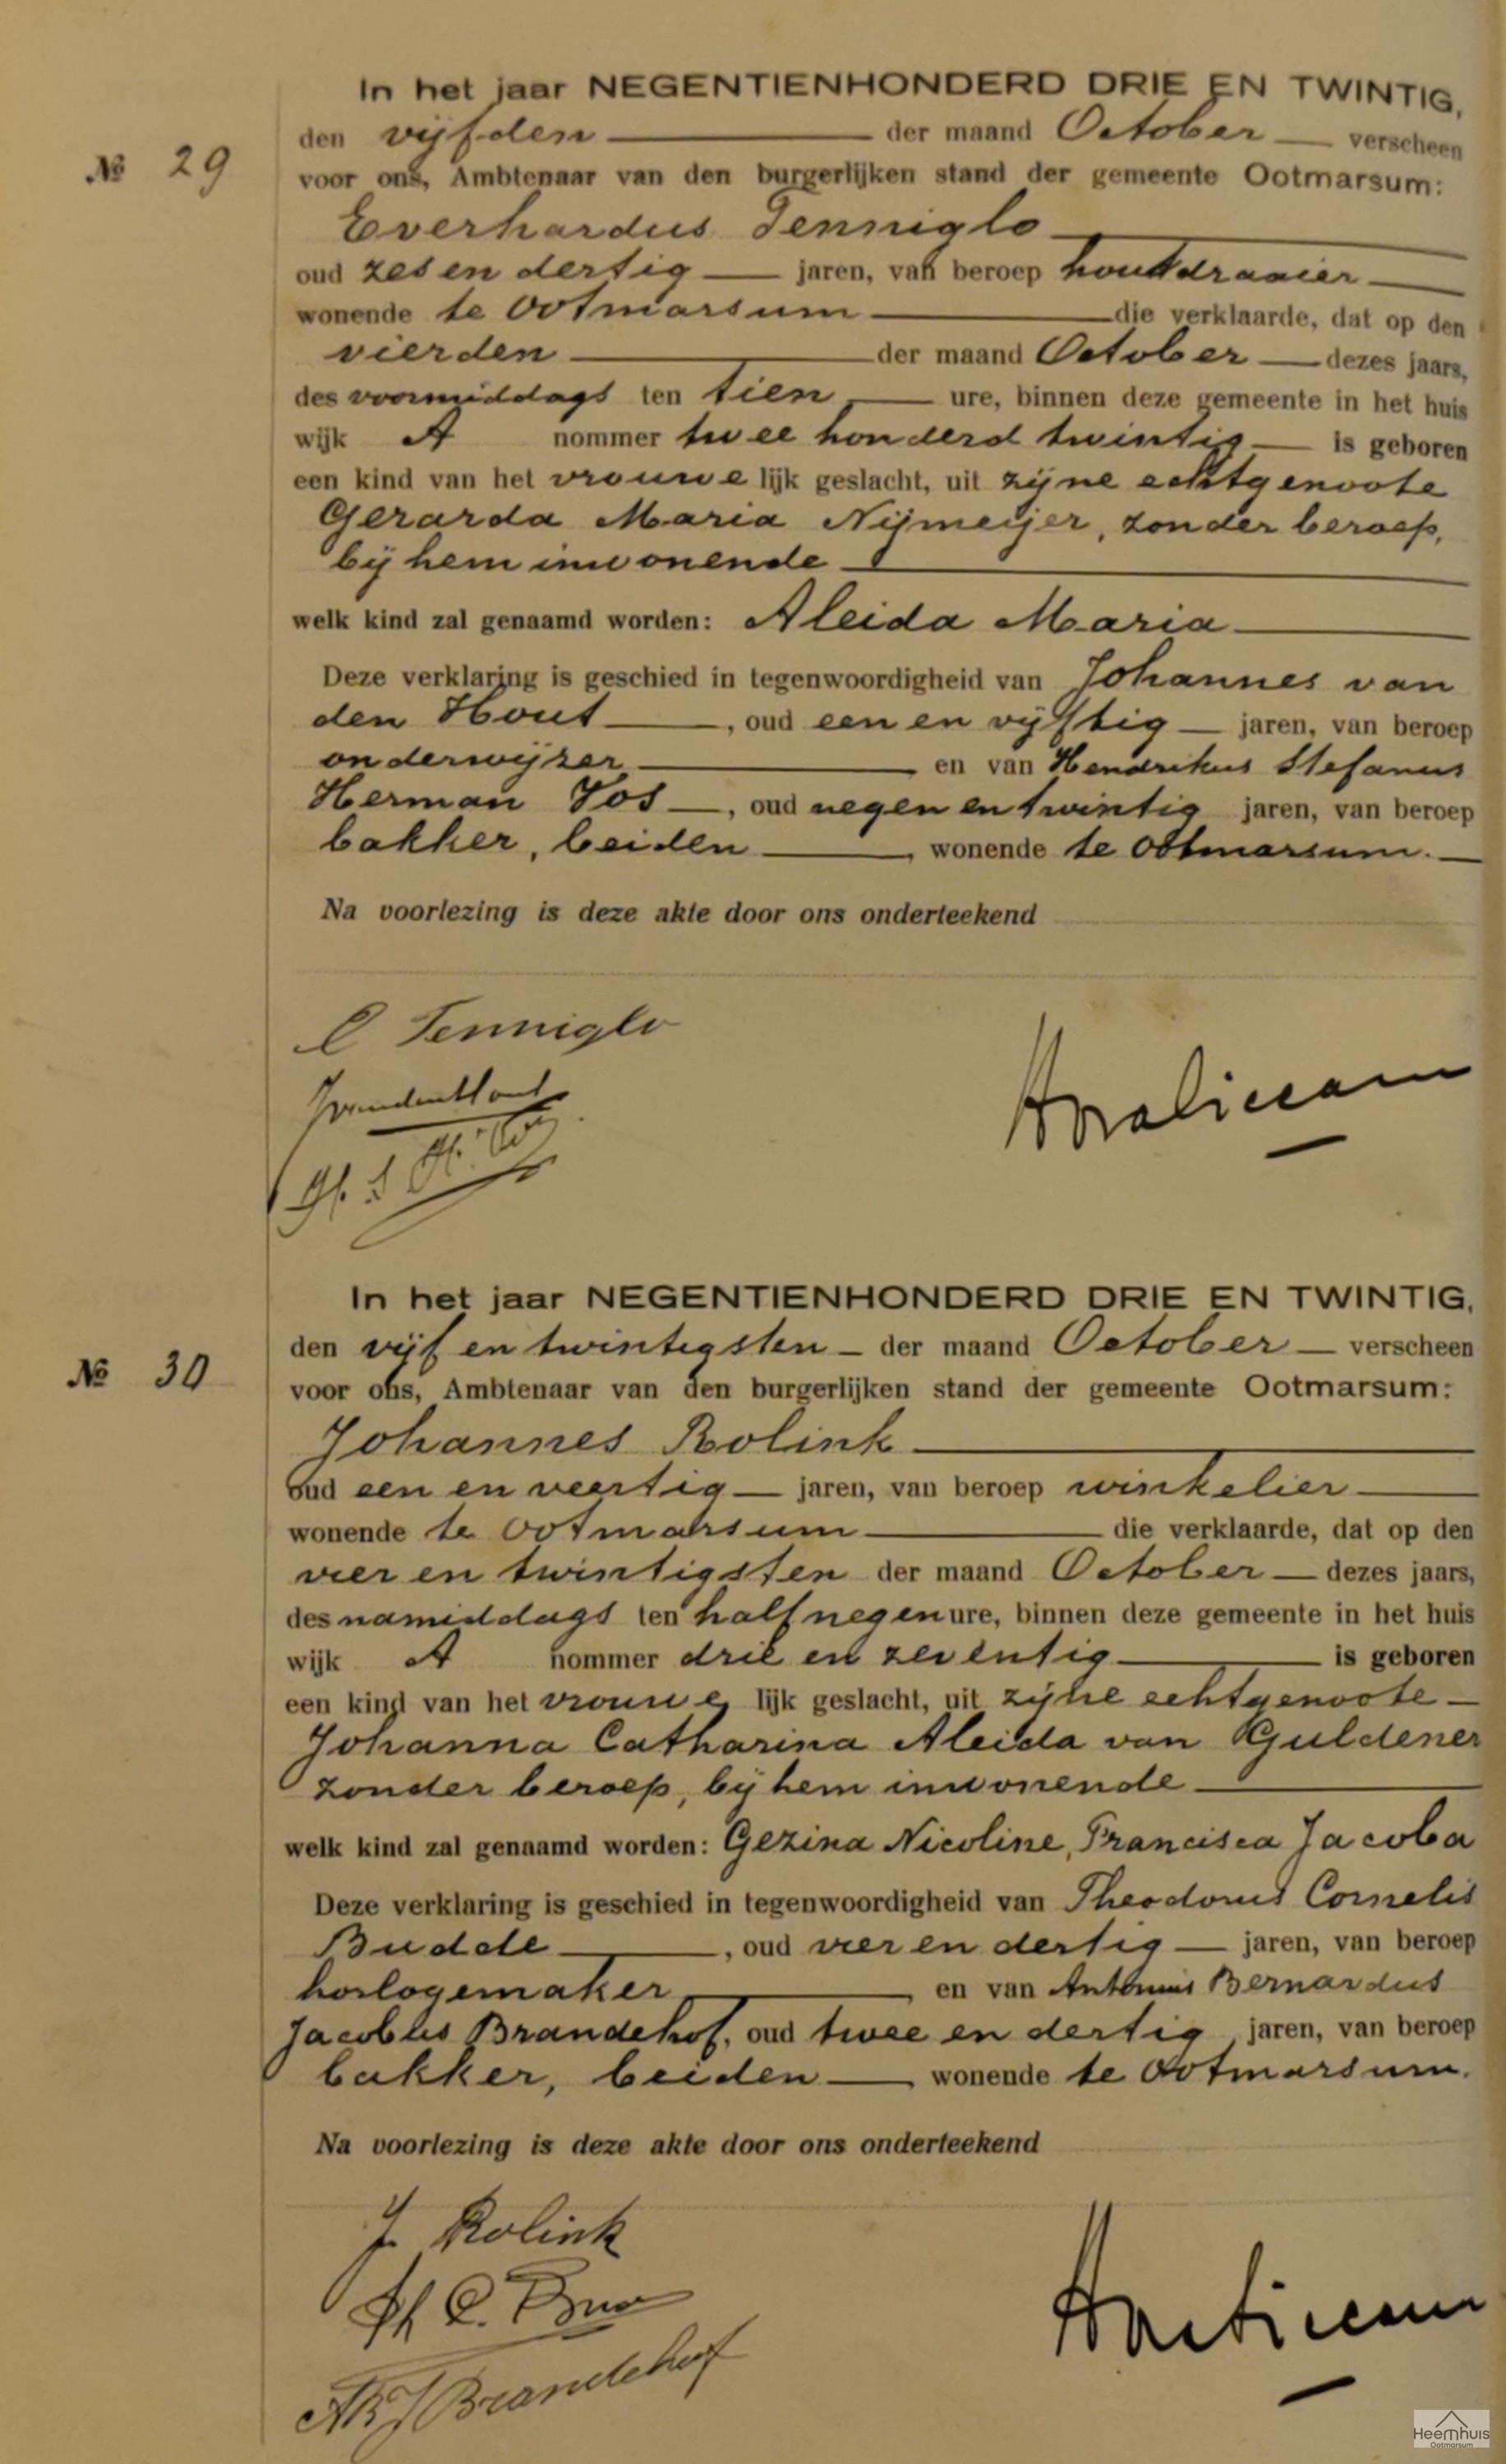 In het jaar NEGENTIENHONDERD DRIE EN TWINTIG,
den vijfden der maand October verscheen
№ 29
voor ons, Ambtenaar van den burgerlijken stand der gemeente Ootmarsum:
Everhardus Tenniglo
oud zes en dertig jaren, van beroep houtdraaier
wonende te Ootmarsum die verklaarde, dat op den
vierden der maand October dezes jaars,
des voormiddags ten tien ure, binnen deze gemeente in het huis
wijk A nommer twee honderd twintig is geboren
een kind van het vrouwe lijk geslacht, uit zijne echtgenoote
Gerarda Maria Nijmeijer, zonder beroep,
bij hem inwonende
welk kind zal genaamd worden: Aleida Maria
Deze verklaring is geschied in tegenwoordigheid van Johannes van
den Hout, oud een en vijftig jaren, van beroep
onderwijzer en van Hendrikus Stefanus
Herman Vos, oud negen en twintig jaren, van beroep
bakker, beiden, wonende te Ootmarsum.
Na voorlezing is deze akte door ons onderteekend
E Tenniglo
JvandenHout
H. S. H. Vos
In het jaar NEGENTIENHONDERD DRIE EN TWINTIG,
den vijf en twintigsten der maand October verscheen
№ 30
voor ons, Ambtenaar van den burgerlijken stand der gemeente Ootmarsum:
Johannes Rolink
oud een en veertig jaren, van beroep winkelier
wonende te Ootmarsum die verklaarde, dat op den
vier en twintigsten der maand October dezes jaars,
des namiddags ten half negen ure, binnen deze gemeente in het huis
wijk A nommer drie en zeventig is geboren
een kind van het vrouwe lijk geslacht, uit zijne echtgenoote
Johanna Catharina Aleida van Guldener
zonder beroep, bij hem inwonende
welk kind zal genaamd worden: Gezina Nicoline, Francisca Jacoba
Deze verklaring is geschied in tegenwoordigheid van Theodorus Cornelis
Budde, oud vier en dertig jaren, van beroep
horlogemaker, en van Antonius Bernardus
Jacobus Brandehof, oud twee en dertig jaren, van beroep
bakker, beiden, wonende te Ootmarsum.
Na voorlezing is deze akte door ons onderteekend
J. Rolink
Th C.
ABJ Brandehof
Heemhuis
Ootmarsum